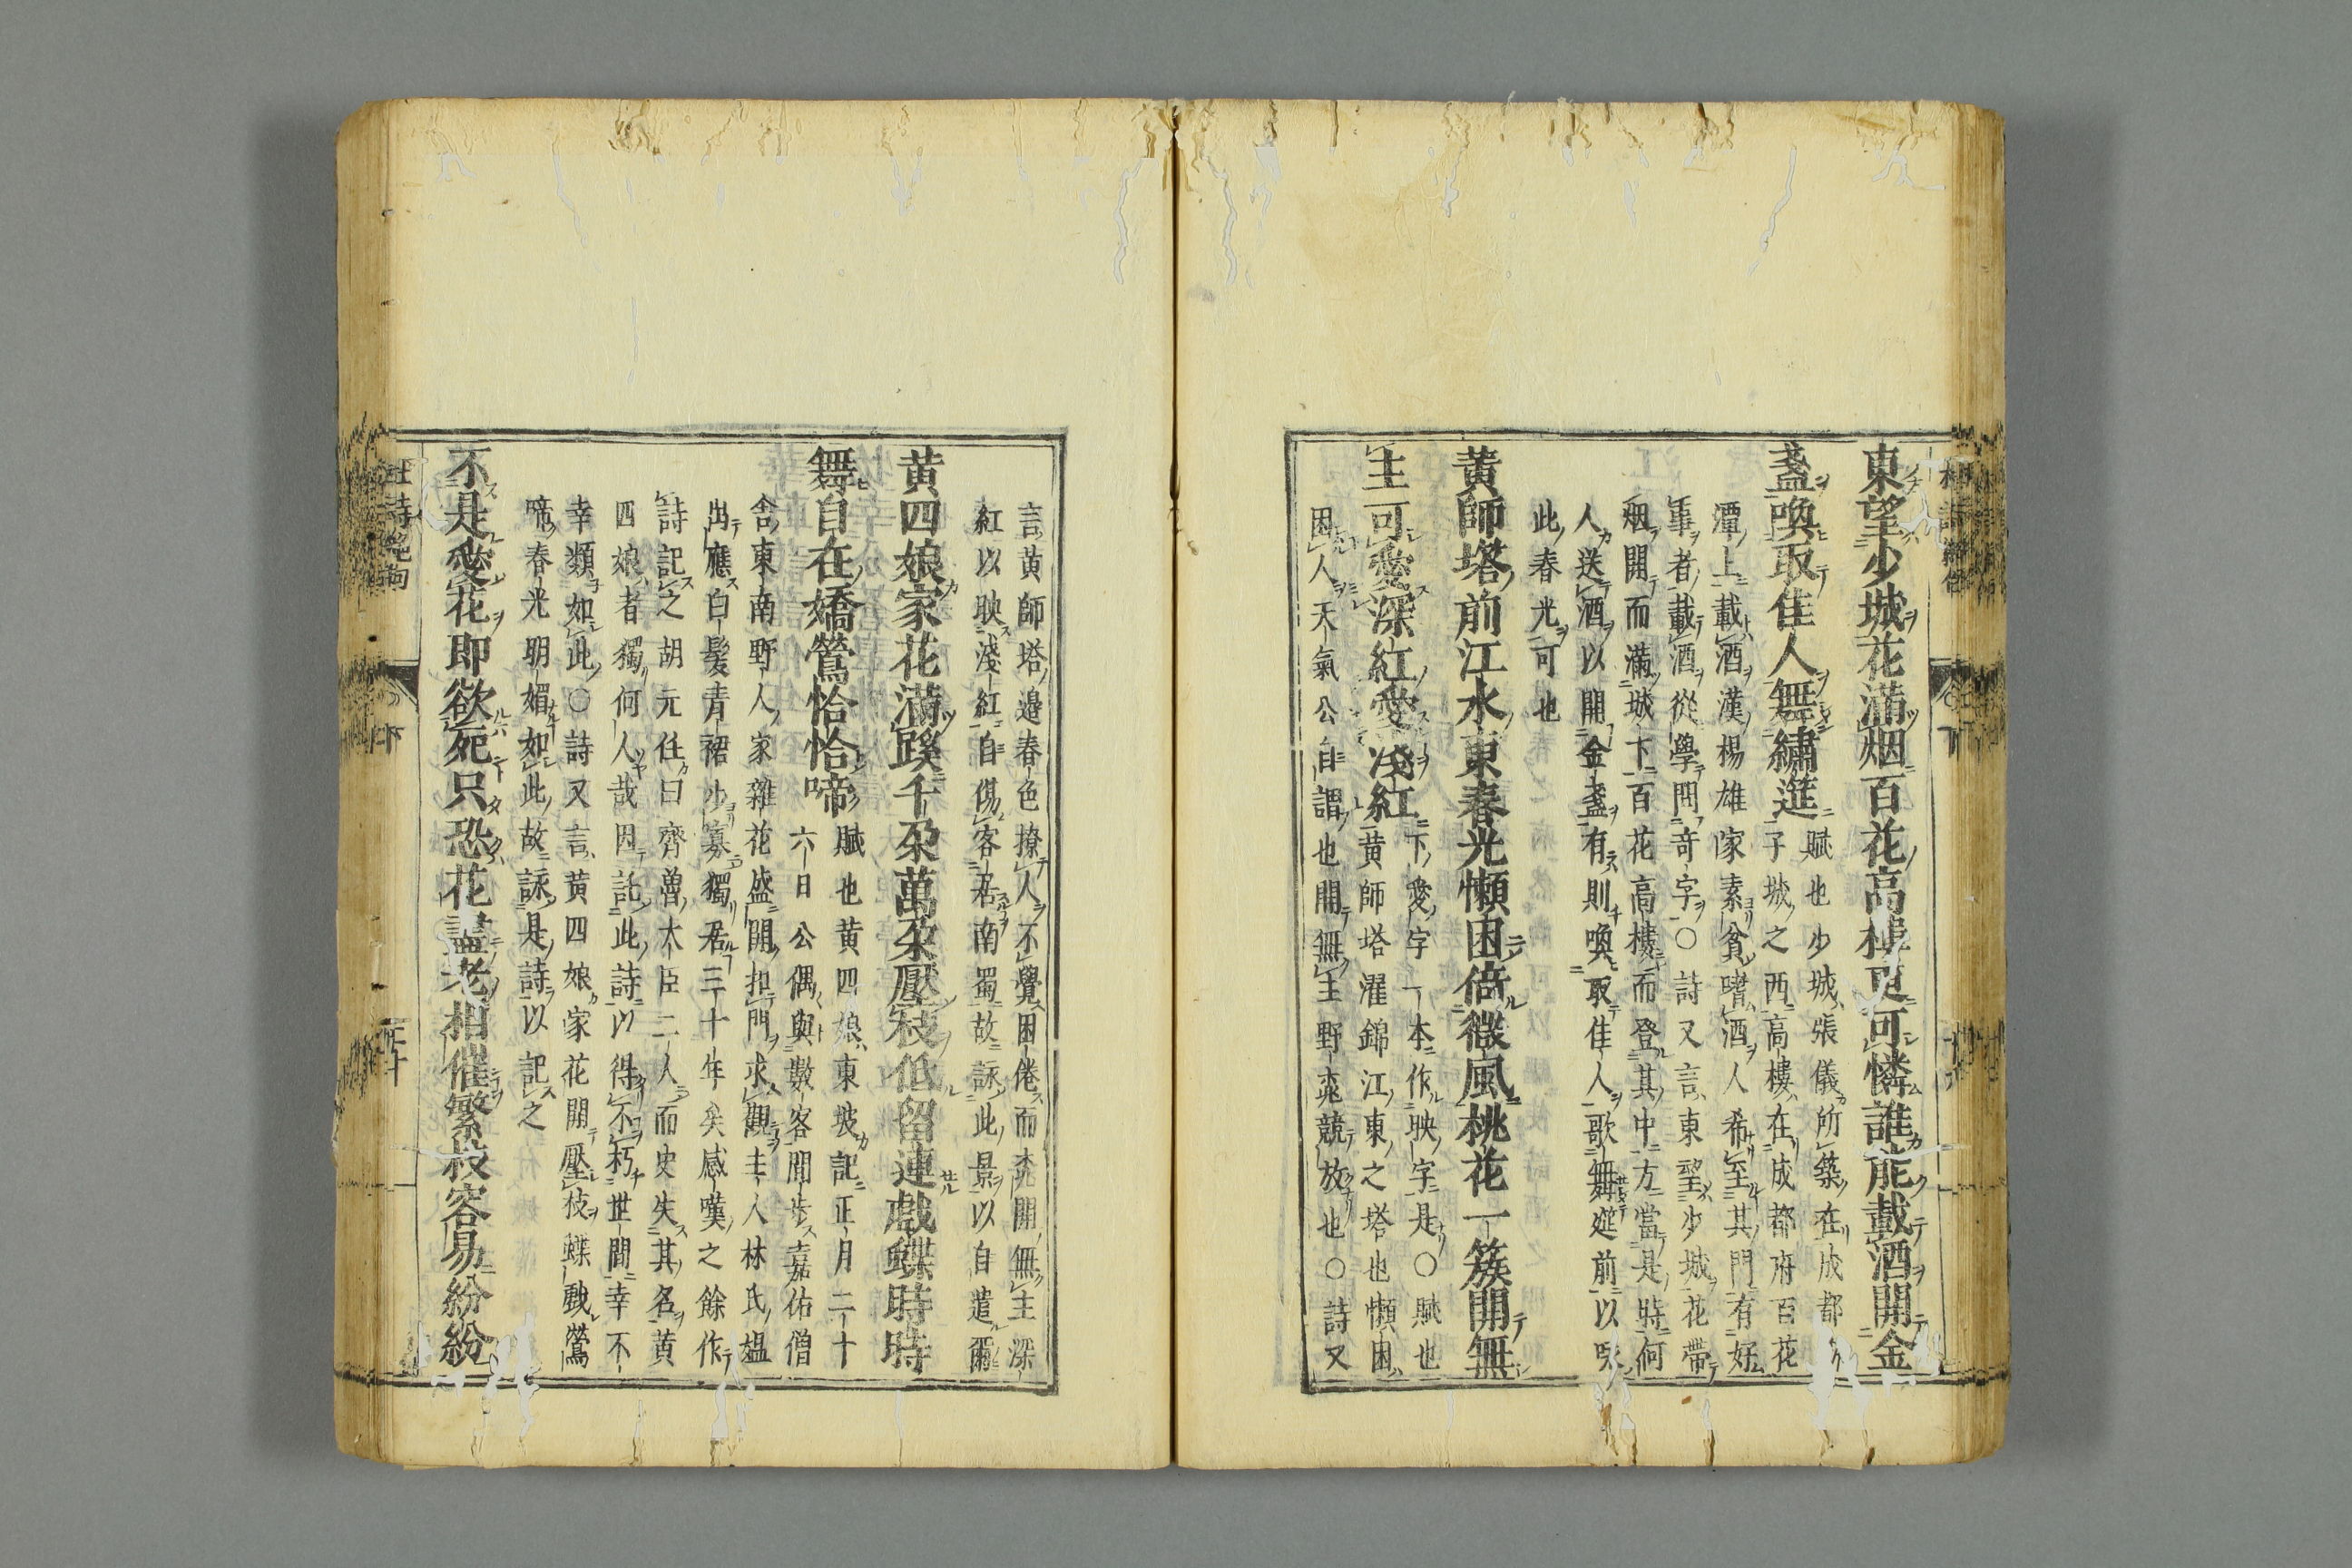 東望少城花滿烟百花高樓更可憐誰能載酒開金
盞喚取佳人舞繡筵
賦也少城張儀所築在成都
子城之西高樓在成都府百花
潭上載酒漢楊雄家素貧嗜酒人希至其門有好
事者載酒從學問奇字○詩又言東望少城花帶
烟開而滿城下百花高樓而登其中方當是時何
人送酒以開金盞有則喚取佳人歌舞筵前以
此春光可也
黄師塔前江水東春光懶困倚微風桃花一簇開無
主可愛深紅愛淺紅
下愛字一本作映字是○賦也
黄師塔濯錦江東之塔也懶困
困人天氣公自謂也開無主野桃競放也○詩又
言黄師塔邉春色撩人不覺困倦而桃開無主深
紅以映淺紅自傷客居南蜀故詠此景以自遣爾
黄四娘家花滿蹊千朶萬朶壓枝低留連戲蝶時時
舞自在嬌鶯恰恰啼
賦也黄四娘東坡記正月二十
六日公偶與數客間歩嘉佑僧
舎東南野人家雜花盛開扣門求觀主人林氏媼
出應白髪青裙少寡獨居三十年矣感嘆之餘作
詩記之胡元任曰齊魯大臣二人而史失其名黄
四娘者獨何人哉因託此詩以得不朽世間幸不
幸類如此○詩又言黄四娘家花開壓枝蝶戲鶯
啼春光明媚如此故詠是詩以記之
不是愛花即欲死只恐花盡老相催繁枝容易紛紛
杜詩絶句